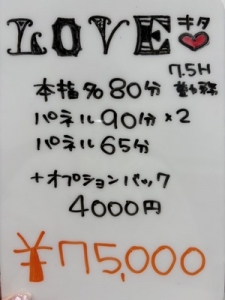 LOVE キタ
7.5H
勤務
本指% 80分
パネル 90分×2
パネル 65分
+オプションバック
4000円
¥75,000